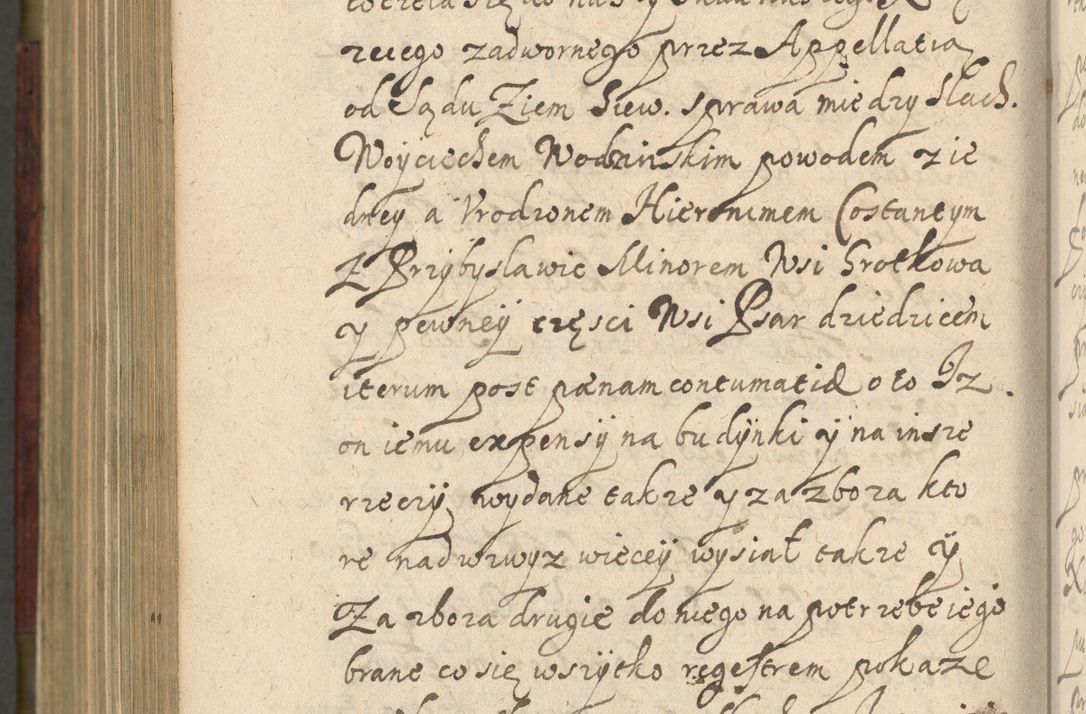 recego zadwornego przez Appellatią
od Sądu Ziem Siew. sprawa miedzy Slach.
Woyciechem Wodzinskim powodem z ie
dney a Vrodzonem Hieronimem Costantym
Z Przÿbyslawic Minorem Wsi Grotkowa
y pewneÿ częsci Wsi Psar dziedzicem
iterum post pænam contumatiæ o to Iz
on iemu expensÿ na budÿnki ÿ na insze
rzeczÿ wydane takze y za zboza kto
re nadwrwyz wieceÿ wysiał takze ÿ
Za zboza drugie do niego na potrzebe iego
brane co się wszÿtko regestrem pokaze